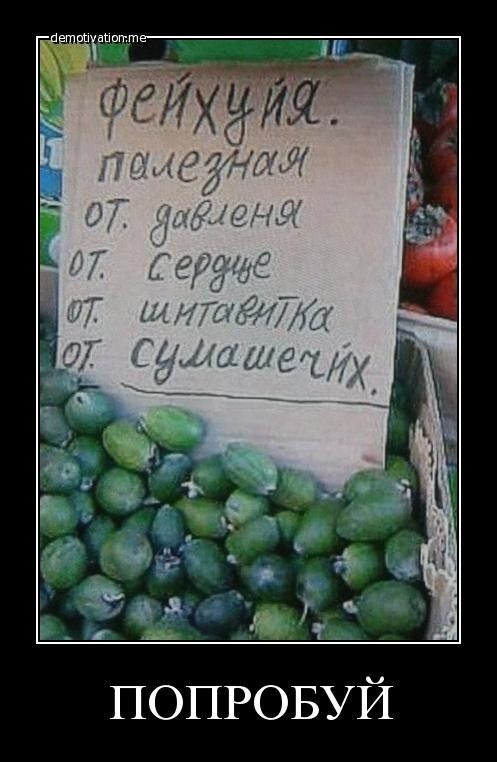 demotivation.me
фейхуйя.
палезная
от. давленя
от. Сердце
от. шитавитка
от. Сумашечих.
ПОПРОБУЙ